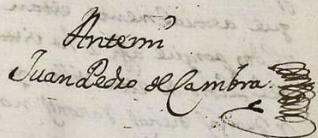 Antemi
Juan Pedro de Cambra.